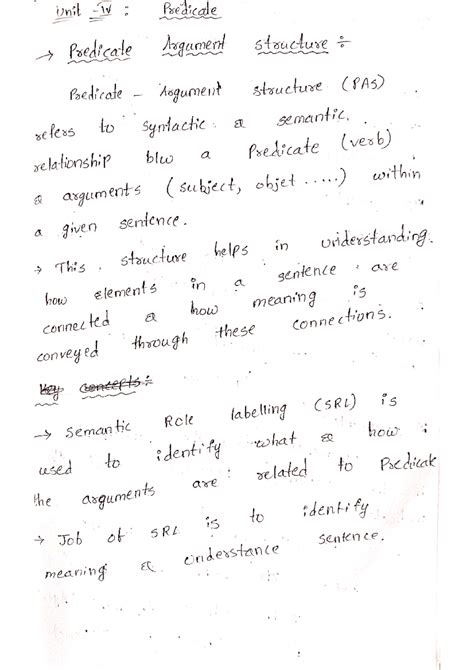 Unit - IV : Predicate
→ Predicate Argument structure :-
Predicate - Argument structure (PAS)
refers to syntactic & semantic
relationship b/w a Predicate (verb)
& arguments (subject, objet .....) within
a given sentence.
→ This structure helps in understanding
how elements in a sentence are
connected & how meaning is
conveyed through these connections.
Key concepts :-
→ Semantic Role labelling (SRL) is
used to identify what & how
the arguments are related to Predicate
→ Job of SRL is to identify
meaning & understance sentence.